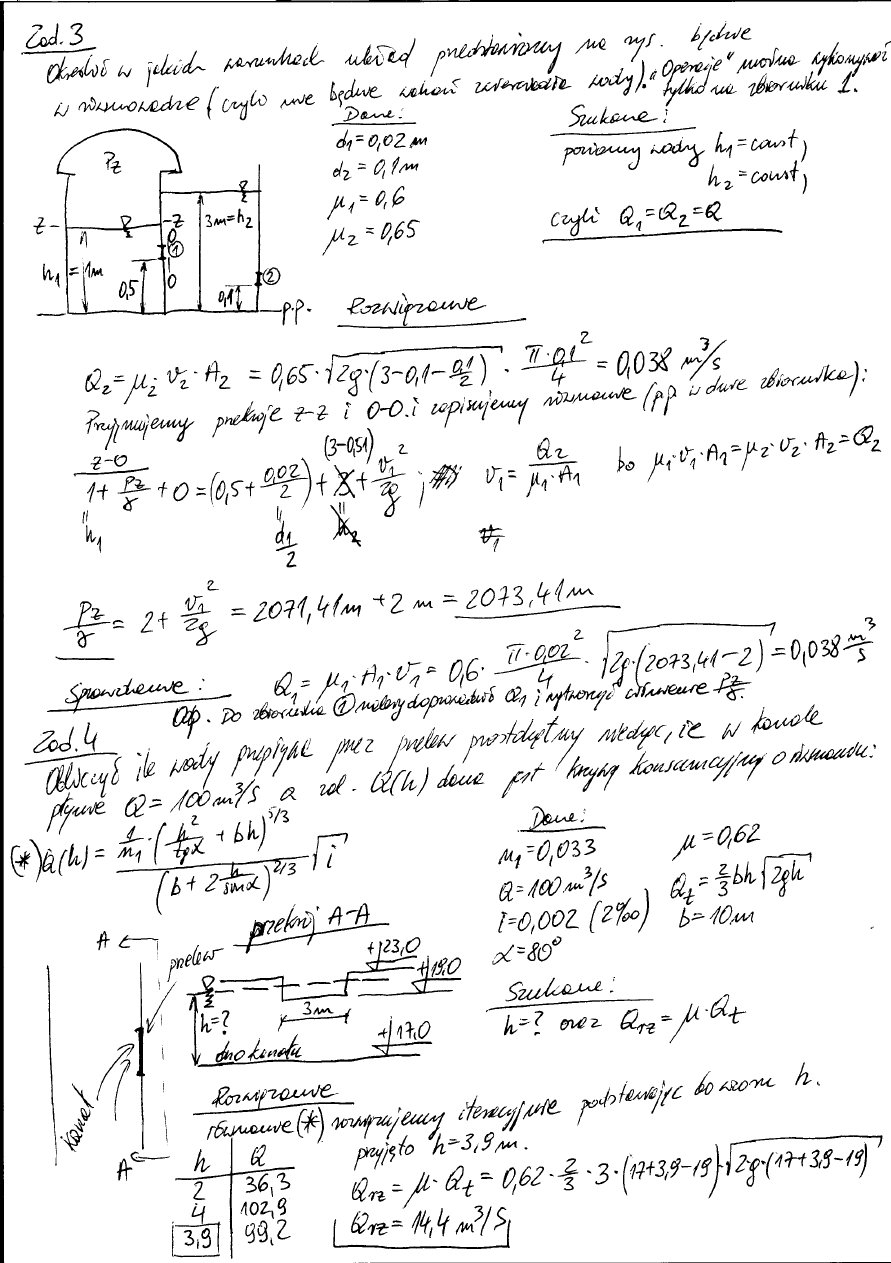 Zad. 3
Określić w jakich warunkach układ przedstawiony na rys. będzie
w równowadze (czyli nie będzie wahań zwierciadła wody). "Operacje" można wykonywać
tylko na zbiorniku 1.
Dane:
d₁=0,02 m
d₂=0,1 m
μ₁=0,6
μ₂=0,65
Szukane:
poziomy wody h₁=const,
h₂=const,
czyli Q₁=Q₂=Q
Pz
z
z
0
①
0
h₁=1m
0,5
3m=h₂
②
0,1
p.p.
Rozwiązanie
Q₂=μ₂·v₂·A₂ = 0,65·√(2g·(3-0,1-0,1/2)) · π·0,1²/4 = 0,038 m³/s
Przyjmujemy przekroje z-z i 0-0 i zapisujemy równanie (pp w dnie zbiornika):
z-0
(3-0,51)
1 + Pz/γ + 0 = (0,5 + 0,02/2) + 2 + v₁²/2g ; v₁ = Q₂/(μ₁·A₁) bo μ₁·v₁·A₁=μ₂·v₂·A₂=Q₂
h₁
d₁/2
h₂
v₁
Pz/γ = 2 + v₁²/2g = 2071,41 m + 2 m = 2073,41 m
Sprawdzenie: Q₁ = μ₁·A₁·v₁ = 0,6 · π·0,02²/4 · √(2g·(2073,41-2)) = 0,038 m³/s
Odp. Do zbiornika ① należy doprowadzić Q₁ i wytworzyć ciśnienie Pz/γ.
Zad. 4
Obliczyć ile wody przepłynie przez przelew prostokątny wiedząc, że w kanale
płynie Q=100 m³/s a zal. Q(h) dana jest krzywą konsumcyjną o równaniu:
(*) Q(h) = 1/n₁·(h²/tgα + bh)^5/3 / (b + 2 h/sinα)^2/3 √i
Dane:
n₁=0,033
Q=100 m³/s
i=0,002 (2‰)
α=80°
μ=0,62
Qt = 2/3 bh√2gh
b=10m
Szukane:
h=? oraz Qrz = μ·Qt
przekrój A-A
A
przelew
kanał
A
+23,0
+19,0
3m
h=?
+17,0
dno kanału
Rozwiązanie
równanie (*) rozwiązujemy iteracyjnie podstawiając do wzoru h.
h Q
2 36,3
4 102,9
3,9 99,2
przyjęto h=3,9 m.
Qrz = μ·Qt = 0,62 · 2/3 · 3 · (17+3,9-19)·√(2·g·(17+3,9-19))
Qrz = 14,4 m³/s